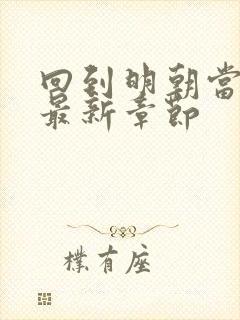 回到明朝當
最新章節
樸有座